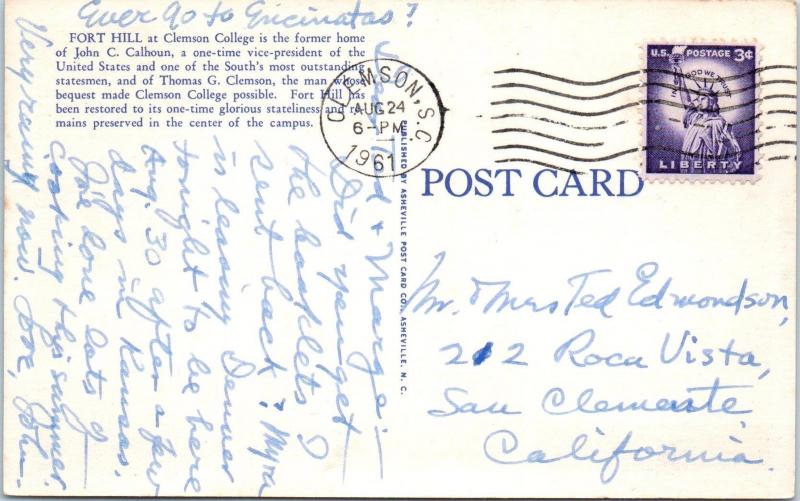 Ever go to Encinatas?
FORT HILL at Clemson College is the former home
of John C. Calhoun, a one-time vice-president of the
United States and one of the South's most outstanding
statesmen, and of Thomas G. Clemson, the man whose
bequest made Clemson College possible. Fort Hill has
been restored to its one-time glorious stateliness and re-
mains preserved in the center of the campus.
Dear Ted & Marge:—
Did you get
the booklets I
sent back? Myra
is leaving Denver
tonight to be here
Aug. 30 after a few
days in Kansas.
I've done lots of
this summer.
Very rainy now. Love, John.
PUBLISHED BY ASHEVILLE POST CARD CO., ASHEVILLE, N. C.
CLEMSON, S.C.
AUG 24
6-PM
1961
U.S. POSTAGE 3¢
IN GOD WE TRUST
LIBERTY
POST CARD
Mr. & Mrs Ted Edmondson,
212 Roca Vista,
San Clemente,
California.